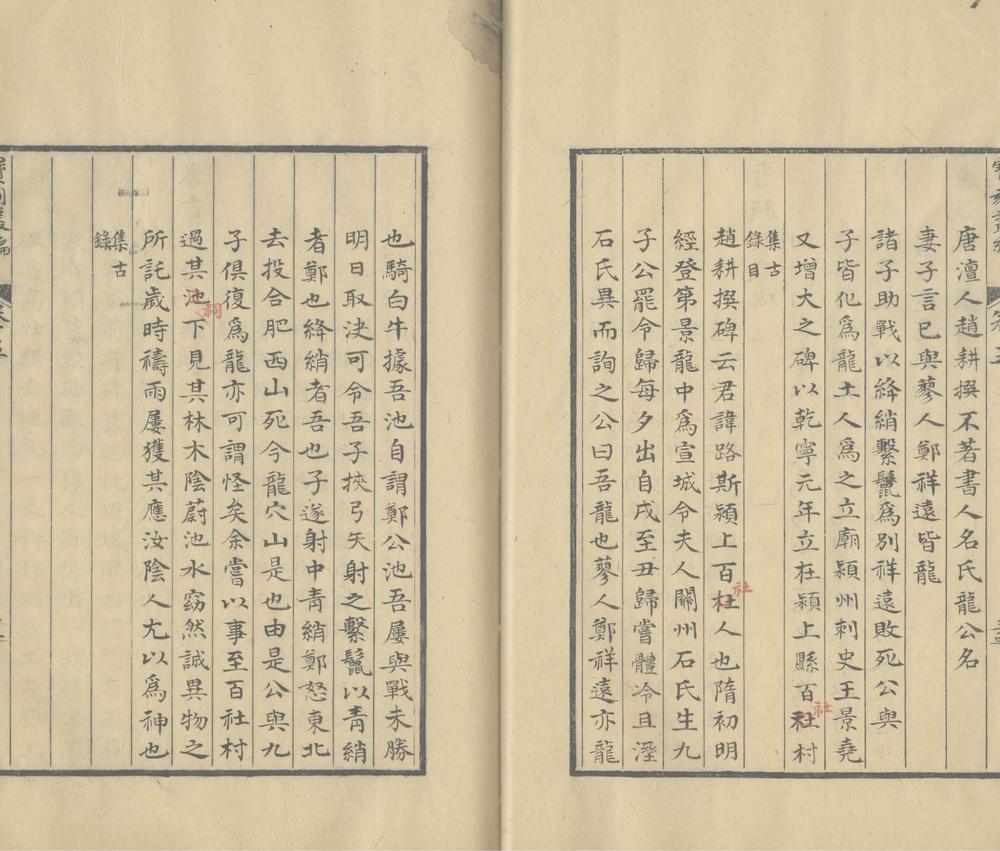 唐澶人趙耕撰不著書人名氏龍公名
妻子言已與蓼人鄭祥遠皆龍
諸子助戰以絳綃繫鬛爲別祥遠敗死公與
子皆化爲龍土人爲之立廟潁州刺史王景堯
又增大之碑以乾寧元年立在潁上縣百社村
社
集古
錄目
趙耕撰碑云君諱路斯潁上百杜人也隋初明
社
經登第景龍中爲宣城令夫人關州石氏生九
子公罷令歸每夕出自戌至丑歸嘗體冷且溼
石氏異而詢之公曰吾龍也蓼人鄭祥遠亦龍
也騎白牛據吾池自謂鄭公池吾屢與戰未勝
明日取決可令吾子挾弓矢射之繫鬛以青綃
者鄭也絳綃者吾也子遂射中青綃鄭怒東北
去投合肥西山死今龍穴山是也由是公與九
子俱復爲龍亦可謂怪矣余嘗以事至百社村
過其池下見其林木陰蔚池水窈然誠異物之
祠
所託歲時禱雨屢獲其應汝陰人尢以爲神也
集古
錄